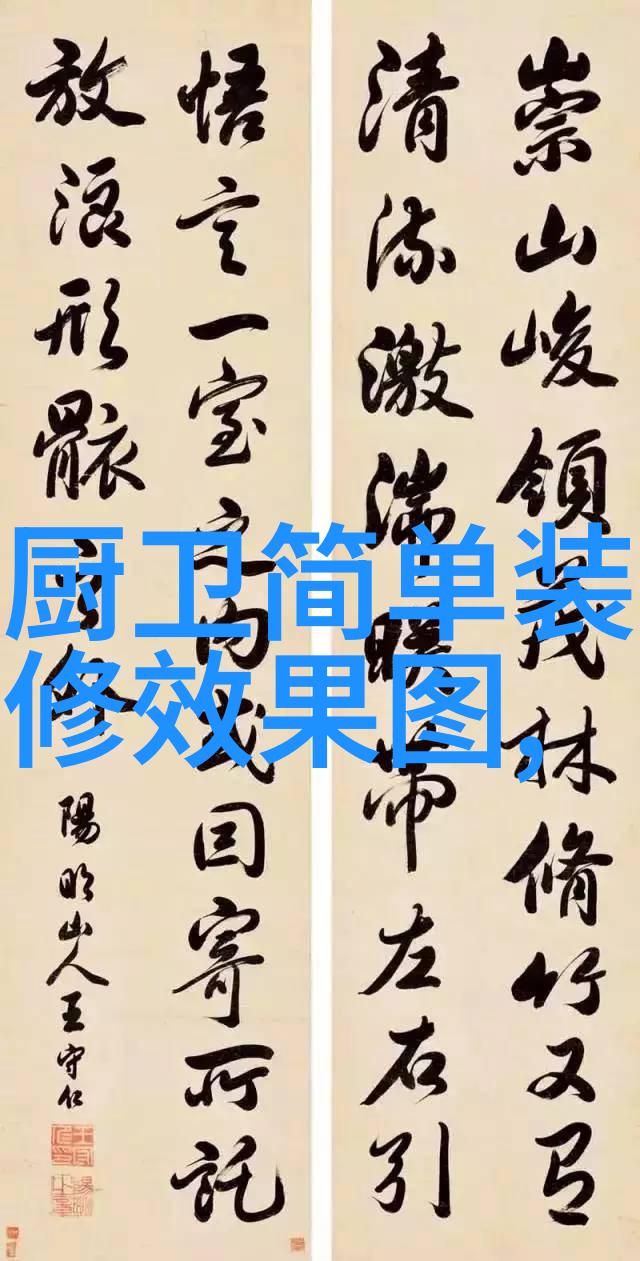 崇山峻領茂林脩竹又有
清流激湍暎帶左右引
悟言一室之内或因寄所託
放浪形骸之外
陽明山人王守仁
厨卫简单装
修效果图,